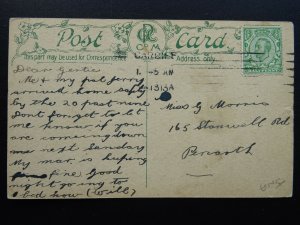 Post Card
This part may be used for Correspondence
Address only.
CARDIFF
Dear Gertie
Me & my pal Jerry
arrived home safe
by the 20 past nine
Dont forget to let
me know if you
are coming down
me next Sunday
My mar. is keeping
fine. Good
night going to
bed now (Will)
Miss G Morris
165 Stanwell Rd
Penarth